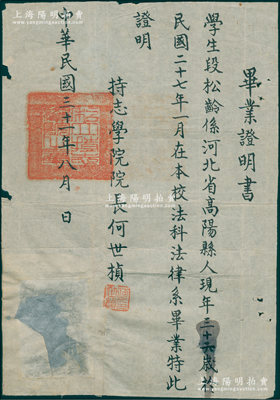 畢業證明書
學生段松齡係河北省高陽縣人現年三十六歲於
民國二十七年一月在本校法科法律系畢業特此
證明
持志學院院長何世楨
中華民國三十一年八月 日
上海陽明拍賣
上海陽明拍賣